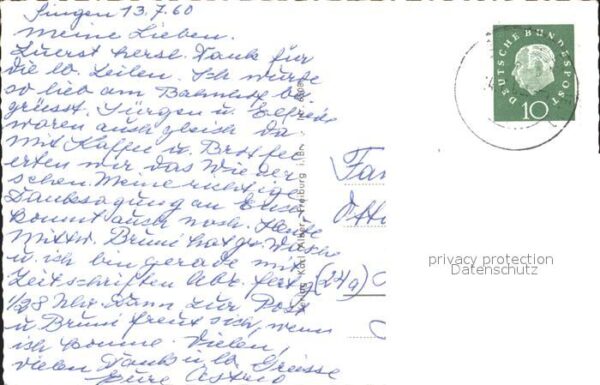 Singen 13.7.60
Meine Lieben.
Zuerst herzl. Dank für
die lb. Zeilen. Ich wurde
so lieb am Bahnhof be
grüsst. Jürgen u. Elfriede
waren auch gleich da
mit Kaffee u. Brot fei
erten wir das Wieder
sehen. Meine richtige
Danksagung an Euch
kommt auch noch. Heute
Mittw. Bruni hat gr. Wäsche
u. ich bin gerade mit
Zeitschriften Abr. fertg
1/28 Uhr. Dann zur Post
u Bruni freut sich, wenn
ich komme. Vielen,
vielen Dank u. lb. Grüsse
Eure Astrid
Karl Alber, Freiburg i. Br.
Fam
Otto
(24a)
DEUTSCHE BUNDESPOST
10
privacy protection
Datenschutz